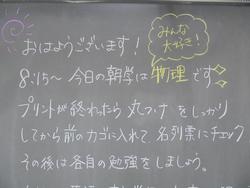 おはようございます!
みんな
大好き!
8:15〜 今日の朝学は物理です
プリントが終わったら丸つけをしっかり
してから前のカゴに入れて、名列票にチェック
その後は各自の勉強をしましょう。